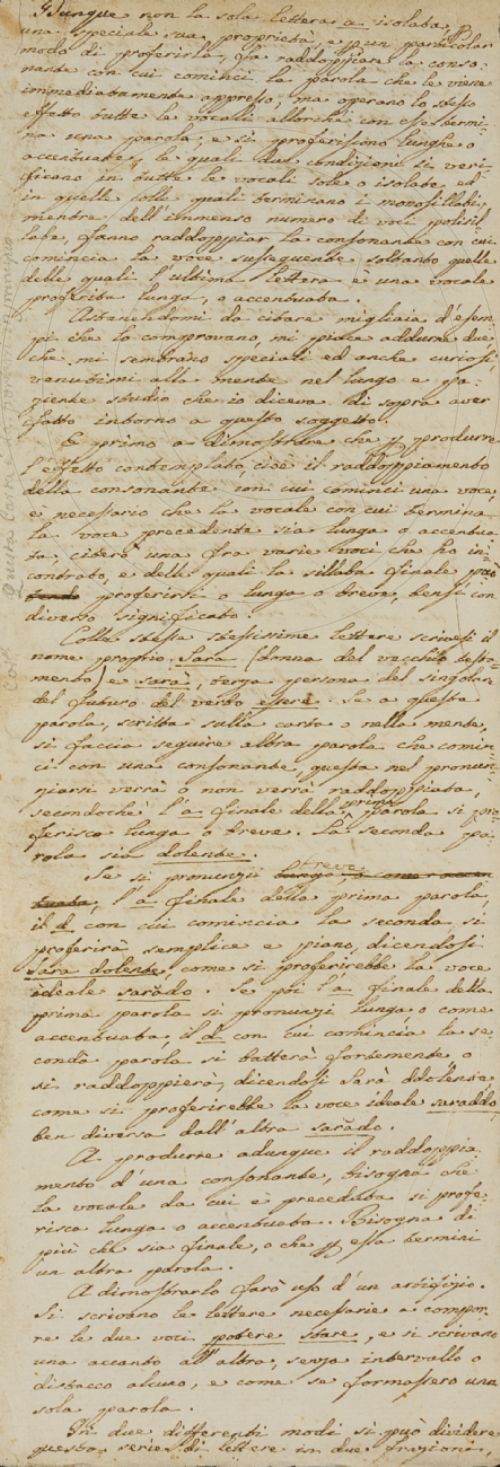 Dunque non la sola lettera a isolata, p
una speciale sua proprietà, e p un particolar
modo di proferirla, fa raddoppiare la conso-
nante con cui cominci la parola che le viene
immediatamente appresso, ma operano lo stesso
effetto tutte le vocali allorchè con esse termi-
na una parola, e si proferiscono lunghe o
accentuate, le quali due condizioni si veri-
ficano in tutte le vocali sole o isolate, ed
in quelle colle quali terminano i monosillabi,
mentre dell'immenso numero di voci polisil-
labe, fanno raddoppiar la consonante con cui
comincia la voce susseguente soltanto quelle
delle quali l'ultima lettera è una vocale
proferita lunga, o accentuata.
Astenendomi da citare migliaia d'esem-
pi che lo comprovano, mi piace addurne due
che mi sembrano speciali ed anche curiosi,
venutimi alla mente nel lungo e pa-
ziente studio che io diceva di sopra aver
fatto intorno a questo soggetto.
E primo a dimostrare che p produrre
l'effetto contemplato, cioè il raddoppiamento
della consonante con cui cominci una voce
è necessario che la vocale con cui termina
la voce precedente sia lunga o accentua-
ta, citerò una fra varie voci che ho in-
contrato, e delle quali la sillaba finale può
proferirsi o lunga o breve, bensì con
diverso significato.
Colle stesse stessissime lettere scrivesi il
nome proprio Sara (donna del vecchio testa-
mento) e sarà, terza persona del singolar
del futuro del verbo essere. Se a questa
parola, scritta sulla carta o nella mente,
si faccia seguire altra parola che comin-
ci con una consonante, questa nel pronun-
ziarsi verrà o non verrà raddoppiata,
secondochè l'a finale della prima parola si pro-
ferisca lunga o breve. La seconda pa-
rola sia dolente.
Se si pronunzii breve lunga, o come accen
tuata, l'a finale della prima parola,
il d con cui comincia la seconda si
proferirà semplice e piano, dicendosi
Sara dolente, come si proferirebbe la voce
ideale sarado. Se poi l'a finale della
prima parola si pronunzi lunga o come
accentuata, il d con cui comincia la se-
conda parola si batterà fortemente, o
si raddoppierà, dicendosi Sarà ddolente
come si proferirebbe la voce ideale saraddo,
ben diversa dall'altra sarado.
A produrre adunque il raddoppia-
mento d'una consonante, bisogna che
la vocale da cui è preceduta si profe-
risca lunga o accentuata. Bisogna di
più che sia finale, o che p essa termini
un altra parola.
A dimostrarlo farò uso d'un artifizio.
Si scrivano le lettere necessarie a compor-
re le due voci potere stare, e si scrivano
una accanto all'altra, senza intervallo o
distacco alcuno, e come se formassero una
sola parola.
In due differenti modi si può dividere
questa serie di lettere in due frazioni,